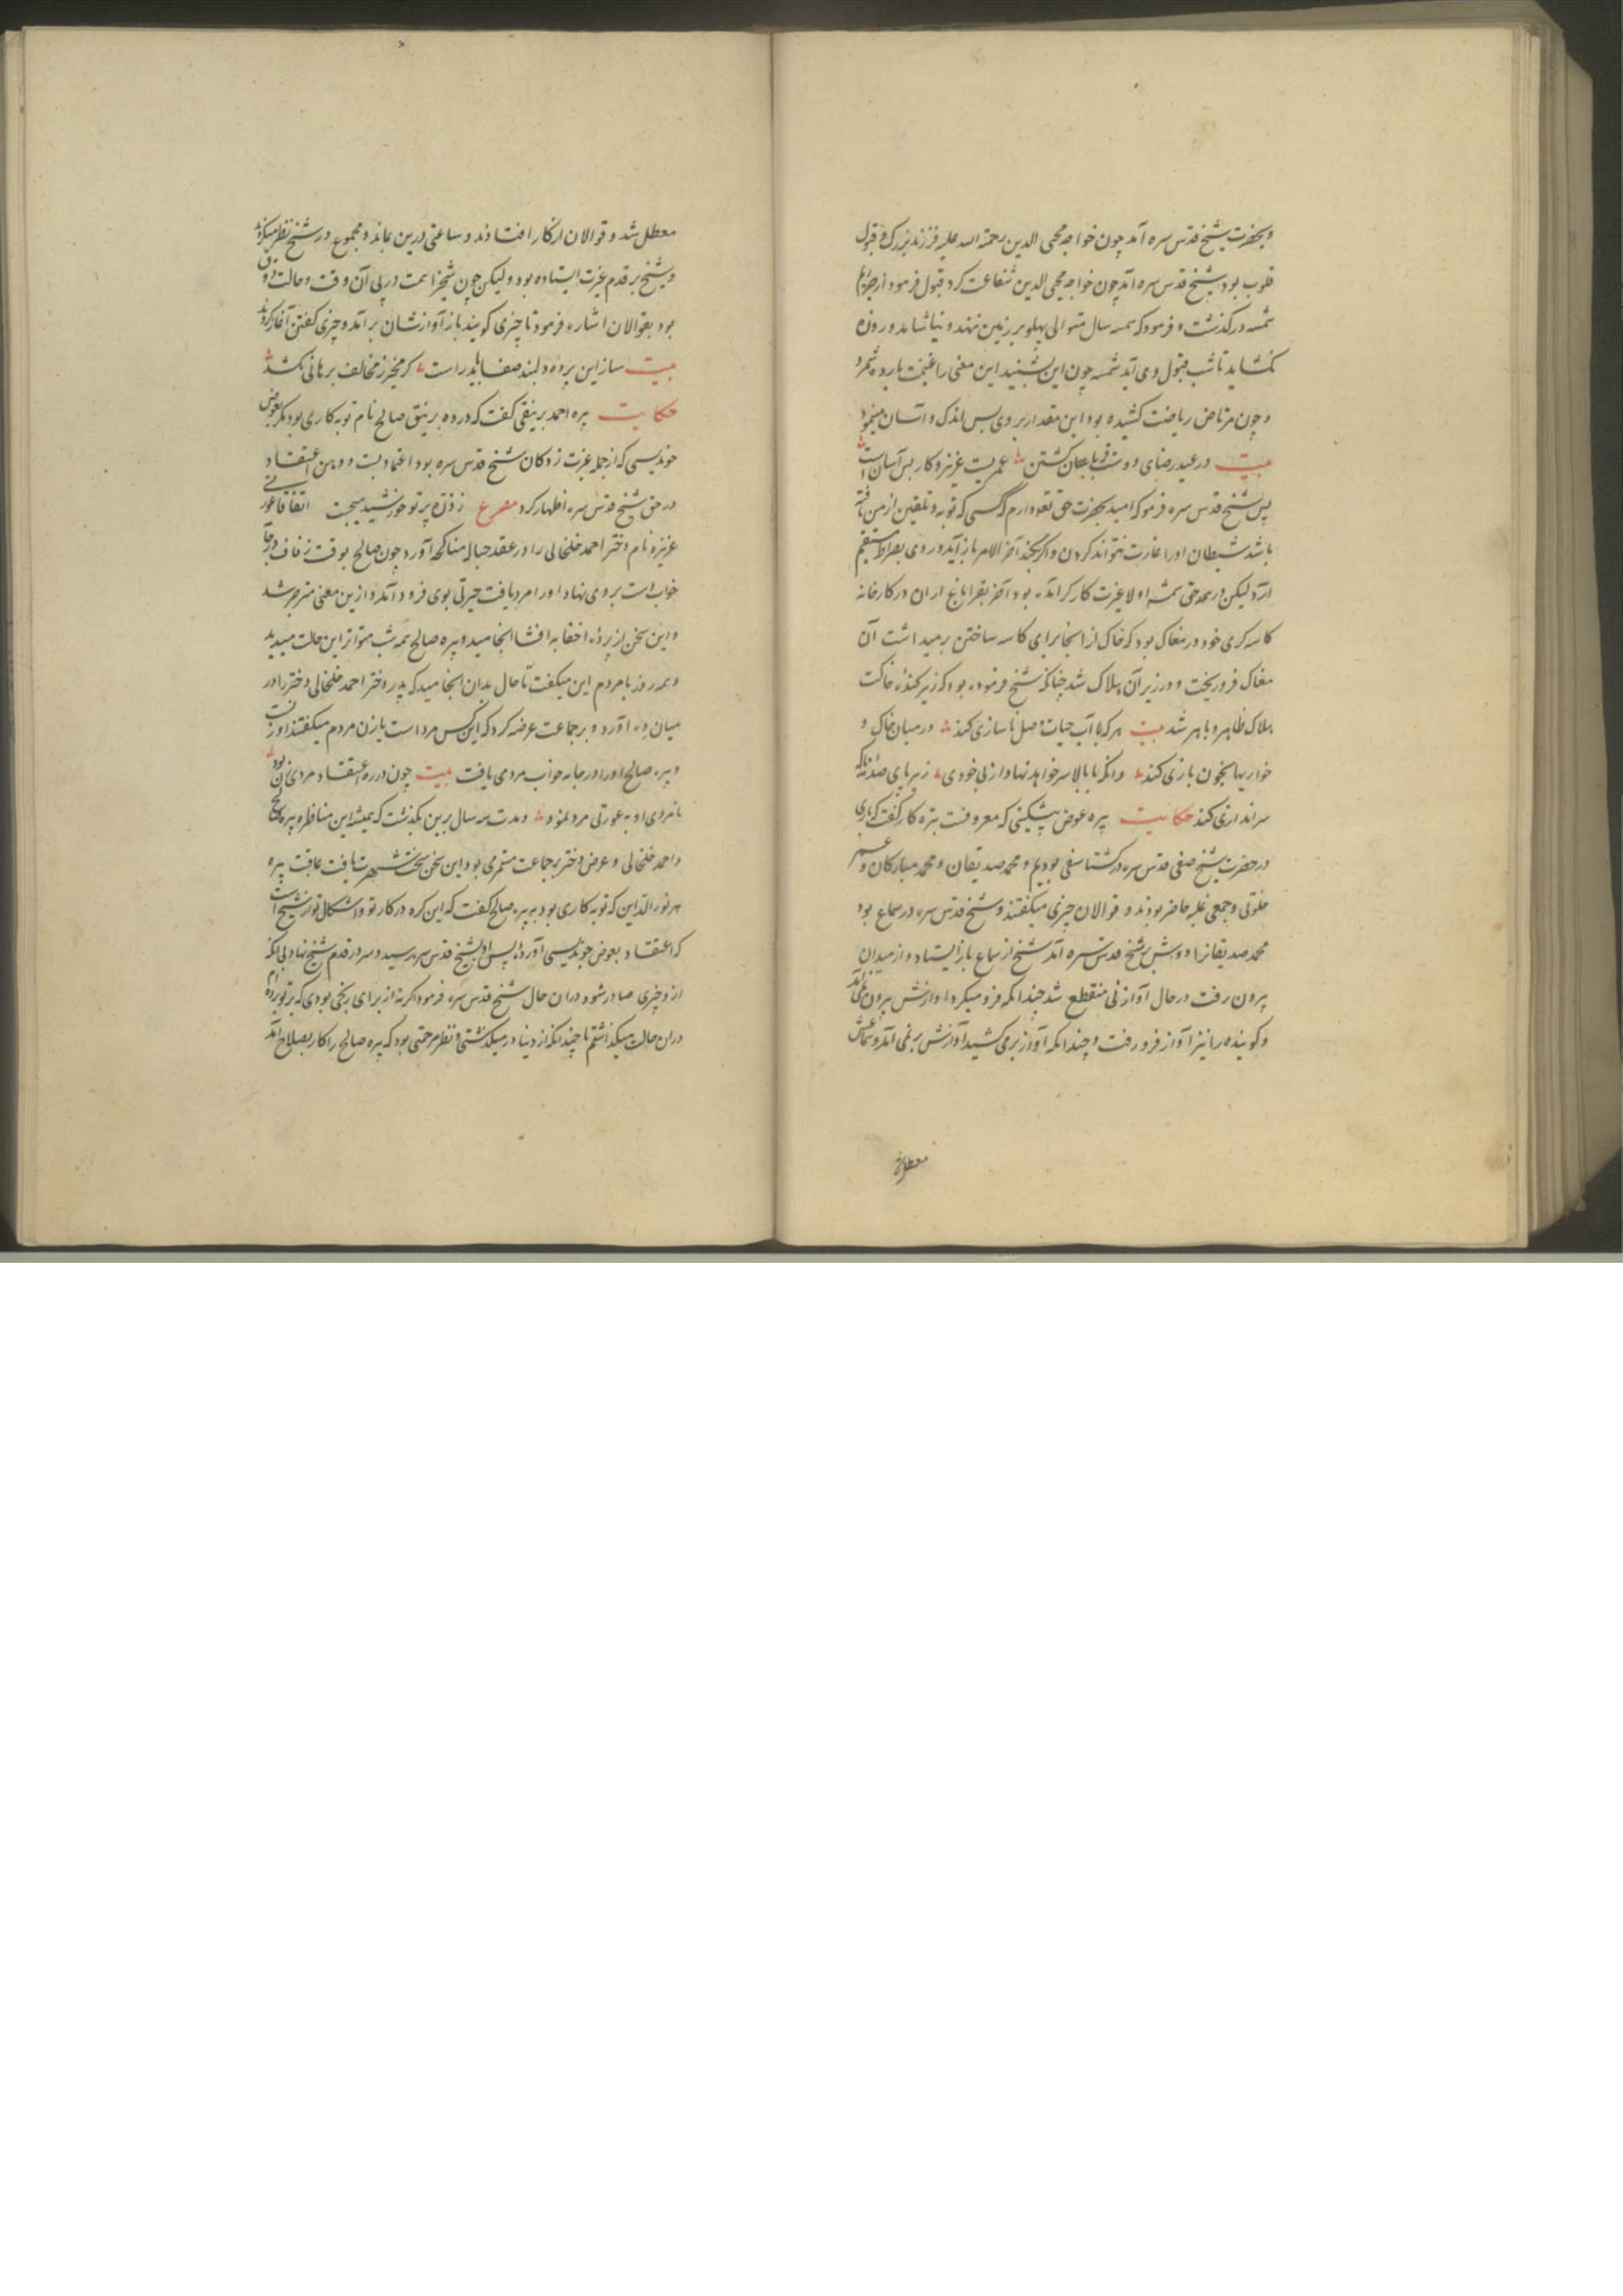 وبحضرت شیخ قدس سره آمد چون خواجه محیی الدین رحمة الله علیه فرزند بزرک و قبول
قلوب بود بشیخ قدس سره آمد چون خواجه محیی الدین شفاعت کرد قبول فرمود از
شمسه درکذشت و فرمود که سه سال متوالی پهلو بر زمین ننهند و نیاشامد و روزه
نکشاید تا شب قبول وی آید شمسه چون این بشنید این معنی را غنیمت
و چون مرتاض ریاضت کشیده بود این مقدار بر وی بس اندک و آسان مینمود
بیت در عید رضای دوست قربان کشتن عمریست عزیز و کار بس آسان است
پس شیخ قدس سره فرمود که امید بحضرت حق تعالی دارم کسی که توبه و تلقین از من یافته
باشد شیطان او را غارت نتواند کردن و اگر بکند آخر الامر باز آید و روی بصراط مستقیم
آرد لیکن در حق شمسه اولا غیرت کارکر آمده بود آخر بقراباغ اران در کارخانه
کاسه کری خود در مغاک بود که خاک از انجا برای کاسه ساختن برمیداشت آن
مغاک فرو ریخت و در زیر آن هلاک شد چنانکه شیخ فرموده بود که زیر کنده خاکت
هلاک ظاهر و باهر شد بیت هر که با آب حیات وصل ناسازی کند در میان خاک و
خواریها بخون بازی کند وانکه پا بالا سر خواهد نهاد از بی خودی زیر پای صدمه
سراندازی کند حکایت پیره عوض پیشکینی که معروفست بتره کار گفت که باری
در حضرت شیخ صفی قدس سره در کشتاسفی بودیم و محمد صدیقان و محمد مبارکان و عمر
خلوتی و جمعی غلبه حاضر بودند و قوالان چیزی میکفتند و شیخ قدس سره در سماع بود
محمد صدیقانرا دوش بر شیخ قدس سره آمد شیخ از سماع باز ایستاد و از میدان
بیرون رفت در حال آواز نی منقطع شد چندانکه فرو میکرد آوازش بیرون نمی آمد
و کوینده را نیز آواز فرو رفت و چندانکه آواز برمی کشید آوازش بر نمی آمد و سماعش
معطل شد و قوالان از کار افتادند و ساعتی درین بماند و مجموع در شیخ نظر میکردند
و شیخ بر قدم غیرت ایستاده بود ولیکن چون شیخ را همت در پی آن وقت و حالت و ذوق
بود بقوالان اشاره فرمود تا چیزی کویند باز آوازشان بر آمد و چیزی کفتن آغاز کردند
بیت ساز این پرده دلبند صفا باید راست کر مخیر ز مخالف برهانی بکشد
حکایت پیره احمد برینقی کفت که در ده برینق صالح نام توبه کاری بود مکر بعوض
خوندیسی که از جمله غیرت زدکان شیخ قدس سره بود اعتماد بست و وهن اعتقادی
در حق شیخ قدس سره اظهار کرد مصرع ز ذره پرتو خورشید میجست اتفاقا عورتی
عزیزه نام دختر احمد خلخالی را در عقد حباله مناکحه آورد چون صالح بوقت زفاف در جامه
خواب دست بر وی نهاد او را مرد یافت حیرتی بوی فرود آمد و ازین معنی متحیر شد
و این سخن از پرده اخفا به افشا انجامید و پیره صالح همه شب متواتر این حالت میدید
و همه روز با مردم این میکفت تا حال بدان انجامید که پدر دختر احمد خلخالی دختر را در
میان ده آورد و بر جماعت عرضه کرد که این کس مرد است یا زن مردم میکفتند او زنست
و پیره صالح او را در جامه خواب مردی یافت بیت چون در ره اعتقاد مردی زن بود
نامردی او به عورتی مرد نمود و مدت سه سال برین بکذشت که همیشه این مناظره پیره صالح
و احمد خلخالی و عرض دختر بر جماعت مستمر می بود این سخن سخت شهرت یافت عاقبت پیره
مهر نور الدین که توبه کاری بود به پیره صالح کفت که این کره در کار تو و اشکال تو از شیخ است
که اعتقاد بعوض خوندیسی آورده پس او بشیخ قدس سره رسید و سر در قدم شیخ نهاد بی انکه
ازو چیزی صادر شود در ان حال شیخ قدس سره فرمود اکر نه از برای رنجی بودی که بر تو برده ام
در ان حالت میکذاشتم تا چندانکه از دنیا در میکذشتی و نظر مرحمتی بود که پیره صالح را کار بصلاح آمد